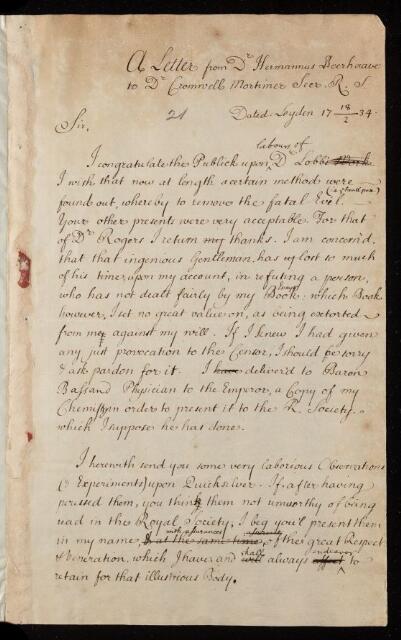 A Letter from Dr. Hermannus Boerhaave
to Dr. Cromwell Mortimer Secr. R. S.
21 Dated Leyden 17 18/2 34.
Sir,
labours of
I congratulate the Publick upon Dr. Lobbs Work
I wish that now at length a certain method were
(
found out, whereby to remove the fatal Evil.
Your other presents were very acceptable. For that
of Dr. Rogers I return my thanks. I am concern'd,
that that ingenious Gentleman, has lost so much
of his time upon my account, in refuting a person,
who has not dealt fairly by my Book: which Book
however, I set no great value on, as being extorted
from me against my will. If I knew I had given
any just provocation to the Censor, I should be sorry
& ask pardon for it. I have deliver'd to Baron
Bassand Physician to the Emperor, a Copy of my
Chemistry in order to present it to the R. Society,
which I suppose he has done.
I herewith send you some very laborious Observations
(& Experiments) upon Quicksilver. If, after having
perused them, you think them not unworthy of being
read in the Royal Society, I beg you'l present them
with assurances
in my name, & at the same time, of the great Respect
shall endeavour
& Veneration, which I have, and will always to
retain for that illustrious Body.